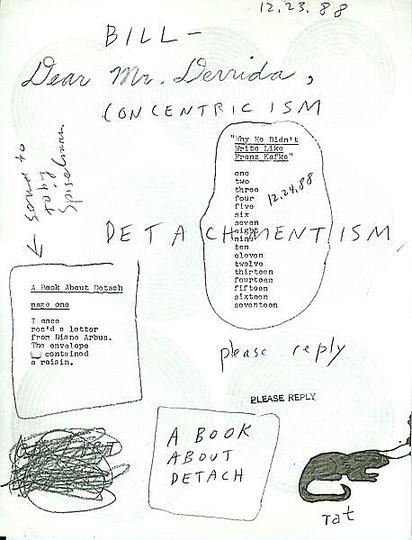 12.23.88
BILL—
Dear Mr. Derrida,
CONCENTRIC ISM
← send to
toby
Spiselman
"Why He Didn't
Write Like
Franz Kafka"
one
two
three
four
five
12.24.88
six
seven
eight
nine
ten
eleven
twelve
thirteen
fourteen
fifteen
sixteen
seventeen
DETACHMENTISM
A Book About Detach
page one
I once
rec'd a letter
from Diane Arbus.
The envelope
contained
a raisin.
please reply
PLEASE REPLY
A BOOK
ABOUT
DETACH
rat